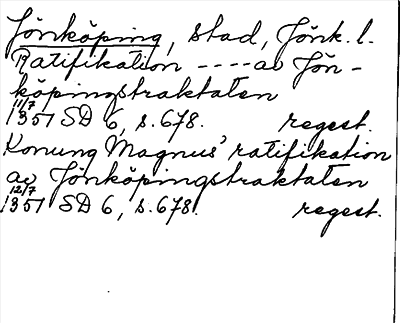 Jönköping, stad, Jönk. l.
Ratifikation ---- av Jön-
köpingstraktaten
11/7
1351 SD 6, s. 678. regest.
Konung Magnus' ratifikation
av Jönköpingstraktaten
12/7
1351 SD 6, s. 678. regest.